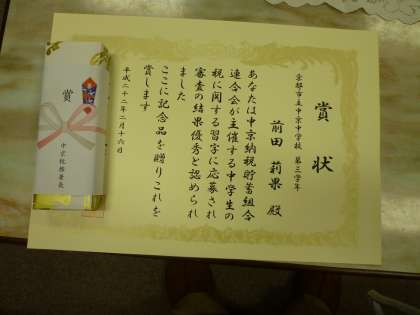 賞状
京都市立中京中学校 第三学年
前田 莉果 殿
あなたは中京納税貯蓄組合
連合会が主催する中学生の
税に関する習字に応募され
審査の結果優秀と認められ
ました
ここに記念品を贈りこれを
賞します
平成二十二年二月十六日
賞